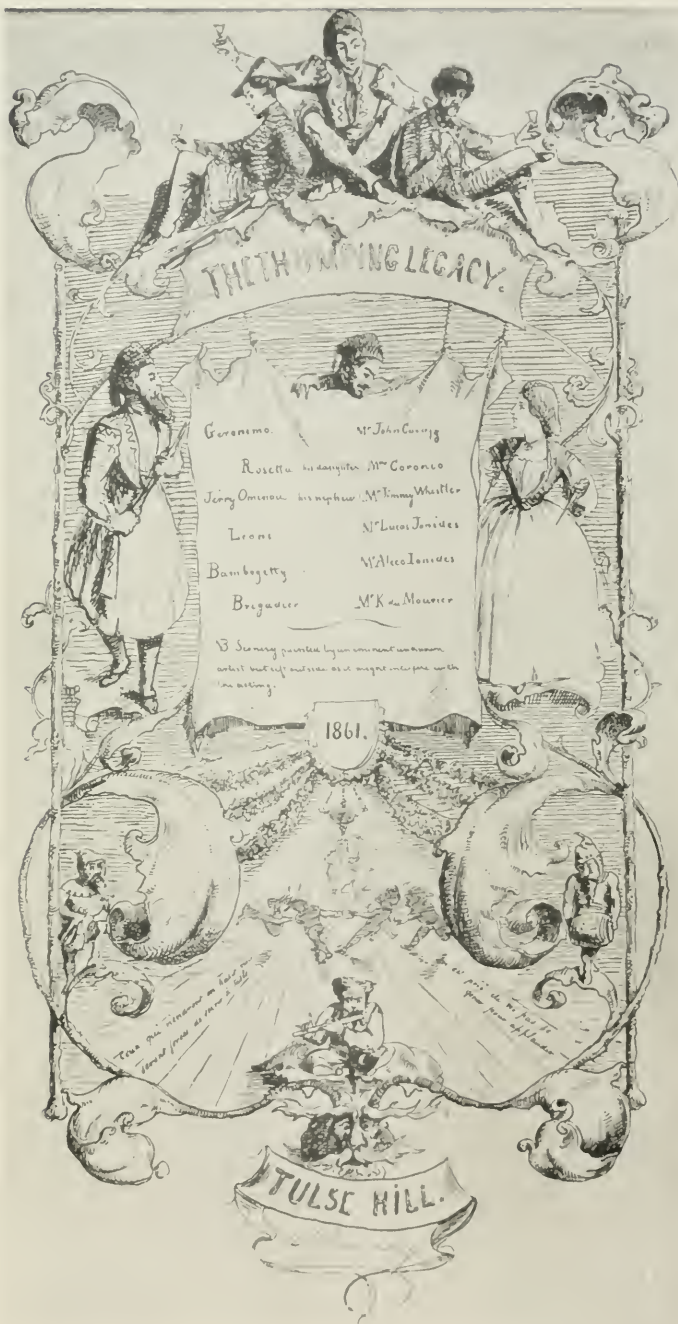 THE THUMPING LEGACY.
Geronimo. Mr John Cavafy
Rosetta his daughter Mrs Coronio
Jerry Ominous his nephew Mr Jimmy Whistler
Leoni Mr Lucas Ionides
Bambogetty Mr Aleco Ionides
Brigadier Mr K du Maurier
NB Scenery painted by an eminent unknown
artist but left outside as it might interfere with
the acting.
1861.
Ceux qui n'auront
seront forcés
est prié de ne pas se
pour applaudir
TULSE HILL.